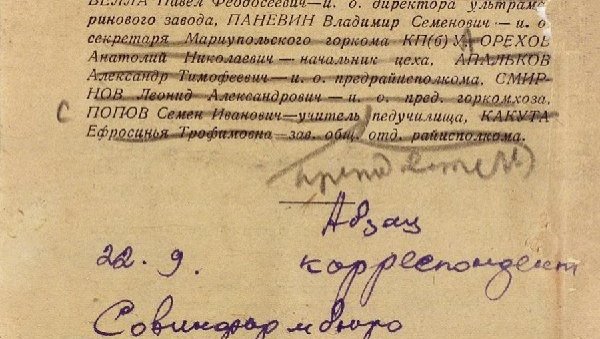 ВЕЛЛА Павел Феодосеевич—и. о. директора ультрама-
ринового завода, ПАНЕВИН Владимир Семенович—и. о.
секретаря Мариупольского горкома КП(б)У, ОРЕХОВ
Анатолий Николаевич—начальник цеха, АПАЛЬКОВ
Александр Тимофеевич—и. о. предрайисполкома, СМИР-
НОВ Леонид Александрович—и. о. пред. горкомхоза,
С ПОПОВ Семен Иванович—учитель педучилища, КАКУТА
Ефросинья Трофимовна—зав. общ. отд. райисполкома.
Абзац
22.9. корреспондент
Совинформбюро